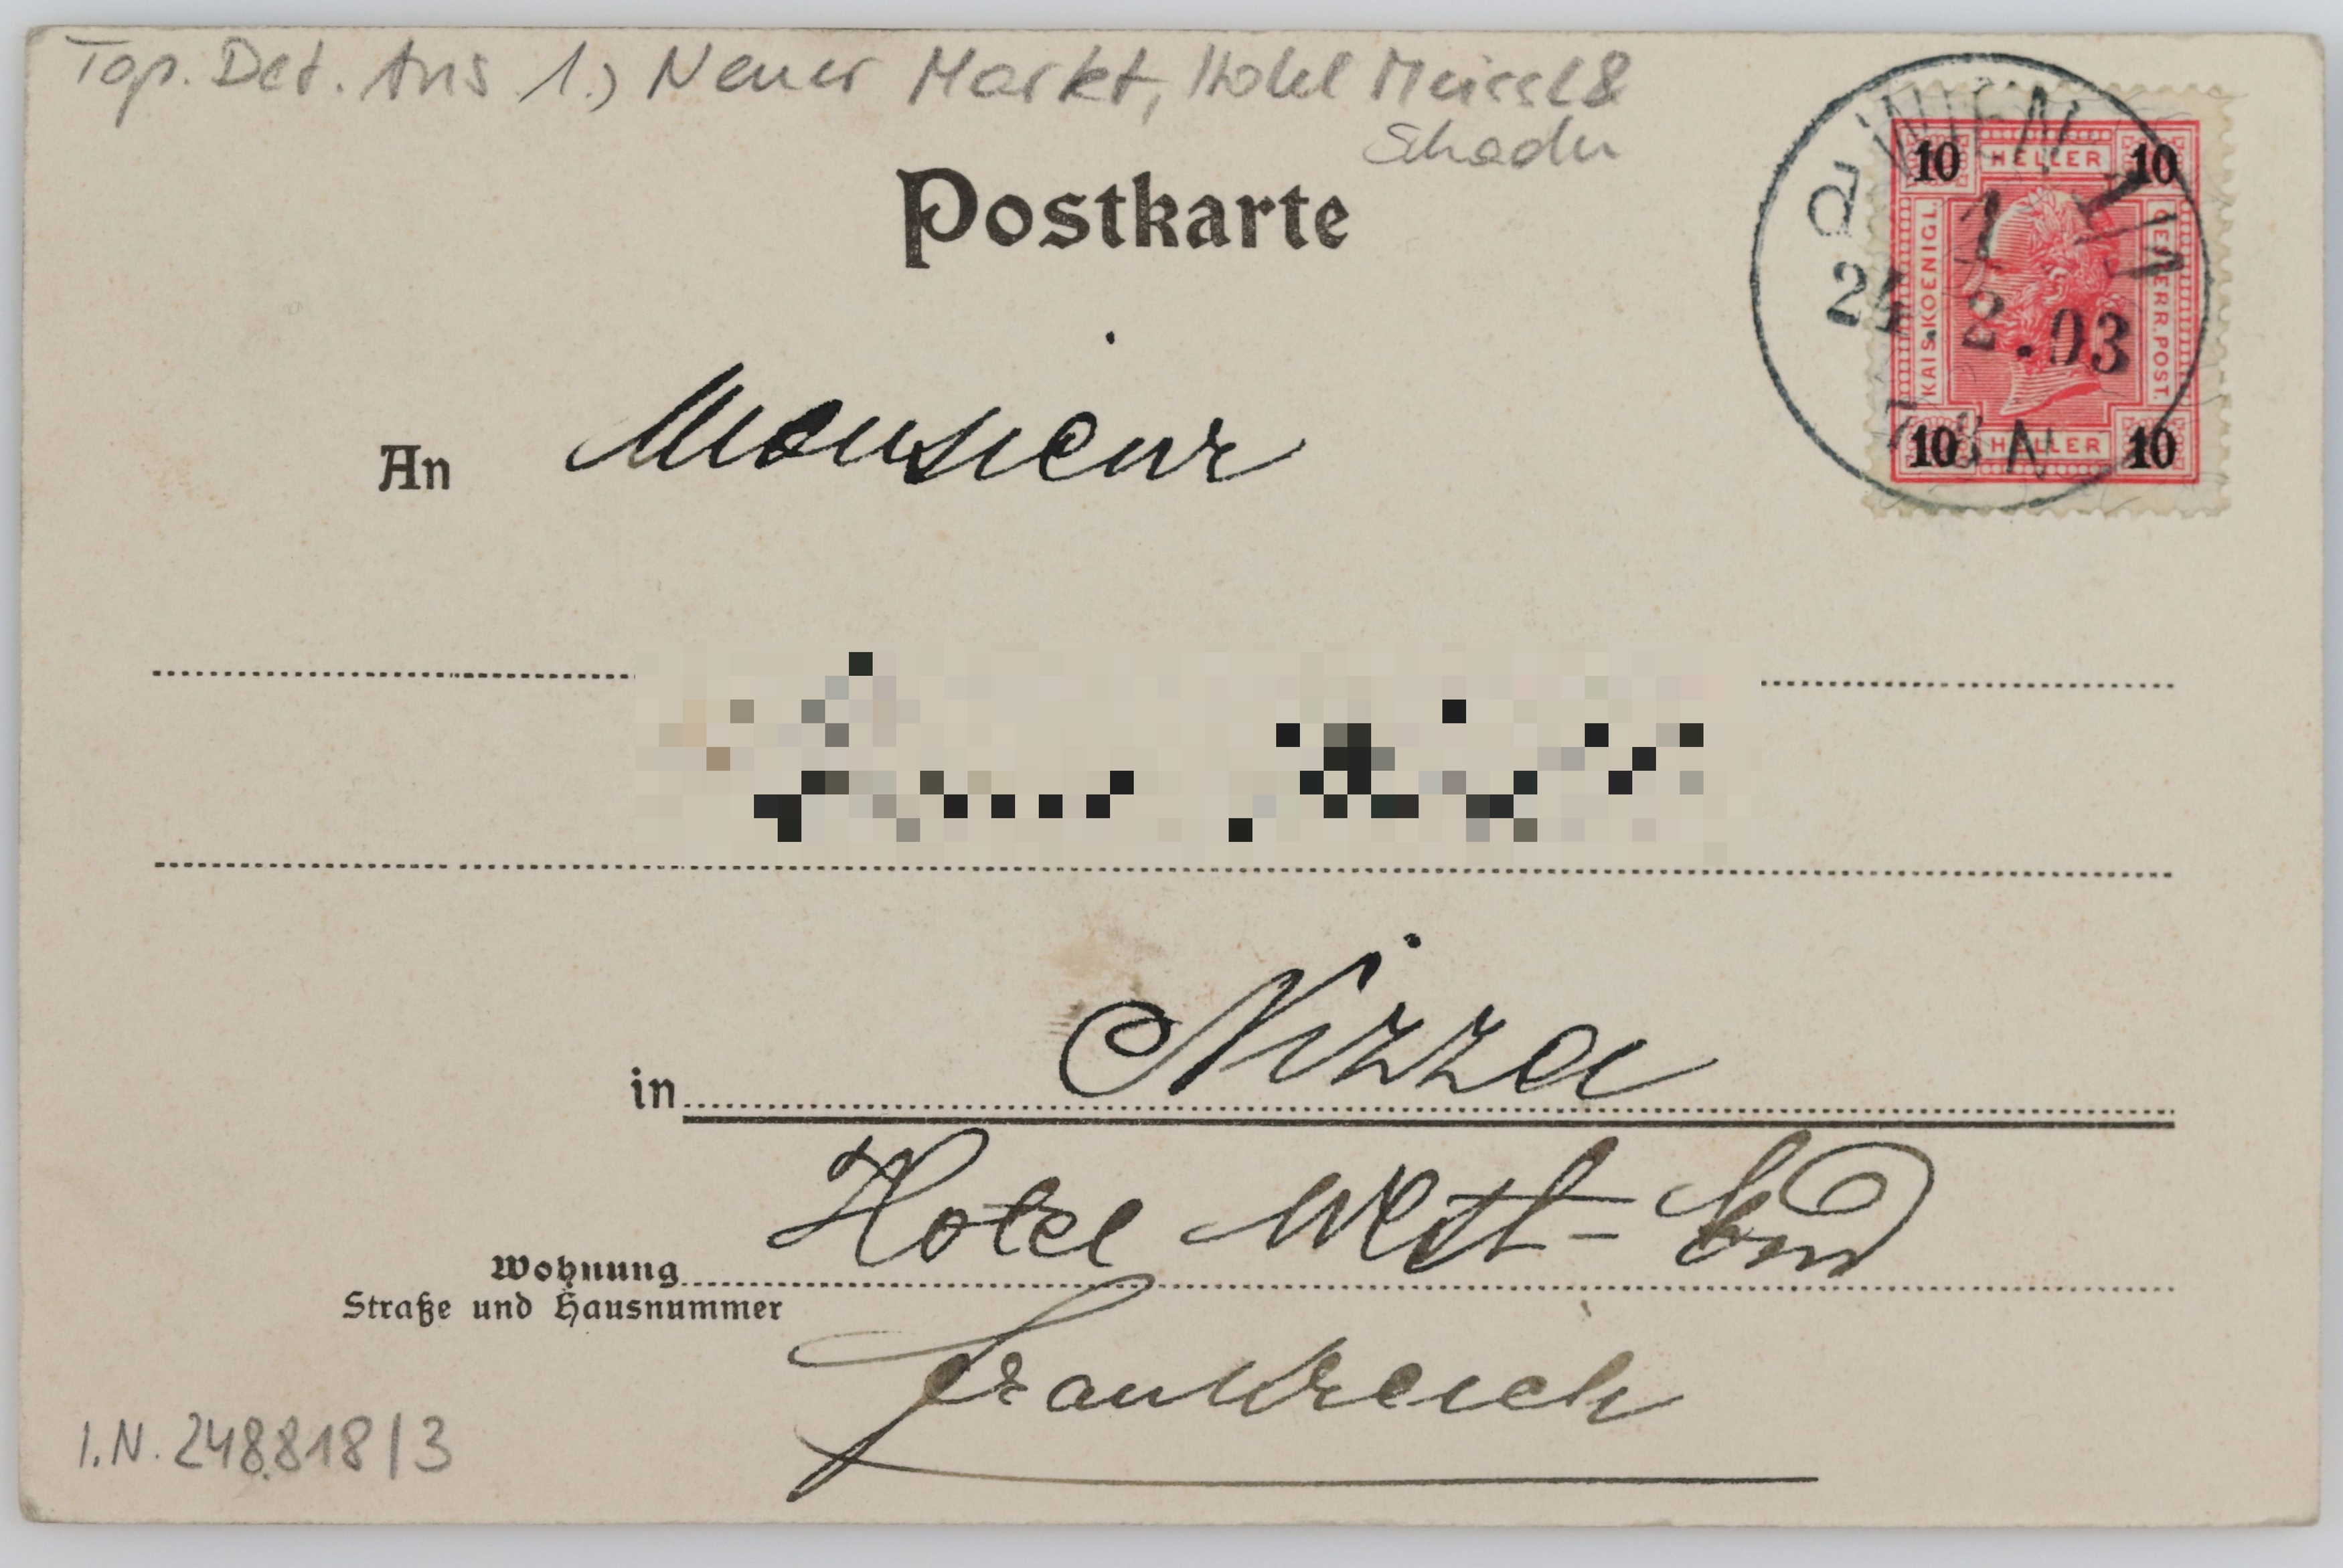 Top. Det. Ans 1., Neuer Markt, Hotel Meissl &
Schadn
Postkarte
WIEN
10 HELLER 10
KAIS. KOENIGL. OESTERR. POST.
24. 2. 03
10 HELLER 10
An Monsieur
in Nizza
Hotel West-End
Wohnung
Straße und Hausnummer
Frankreich
I.N. 248.818/3